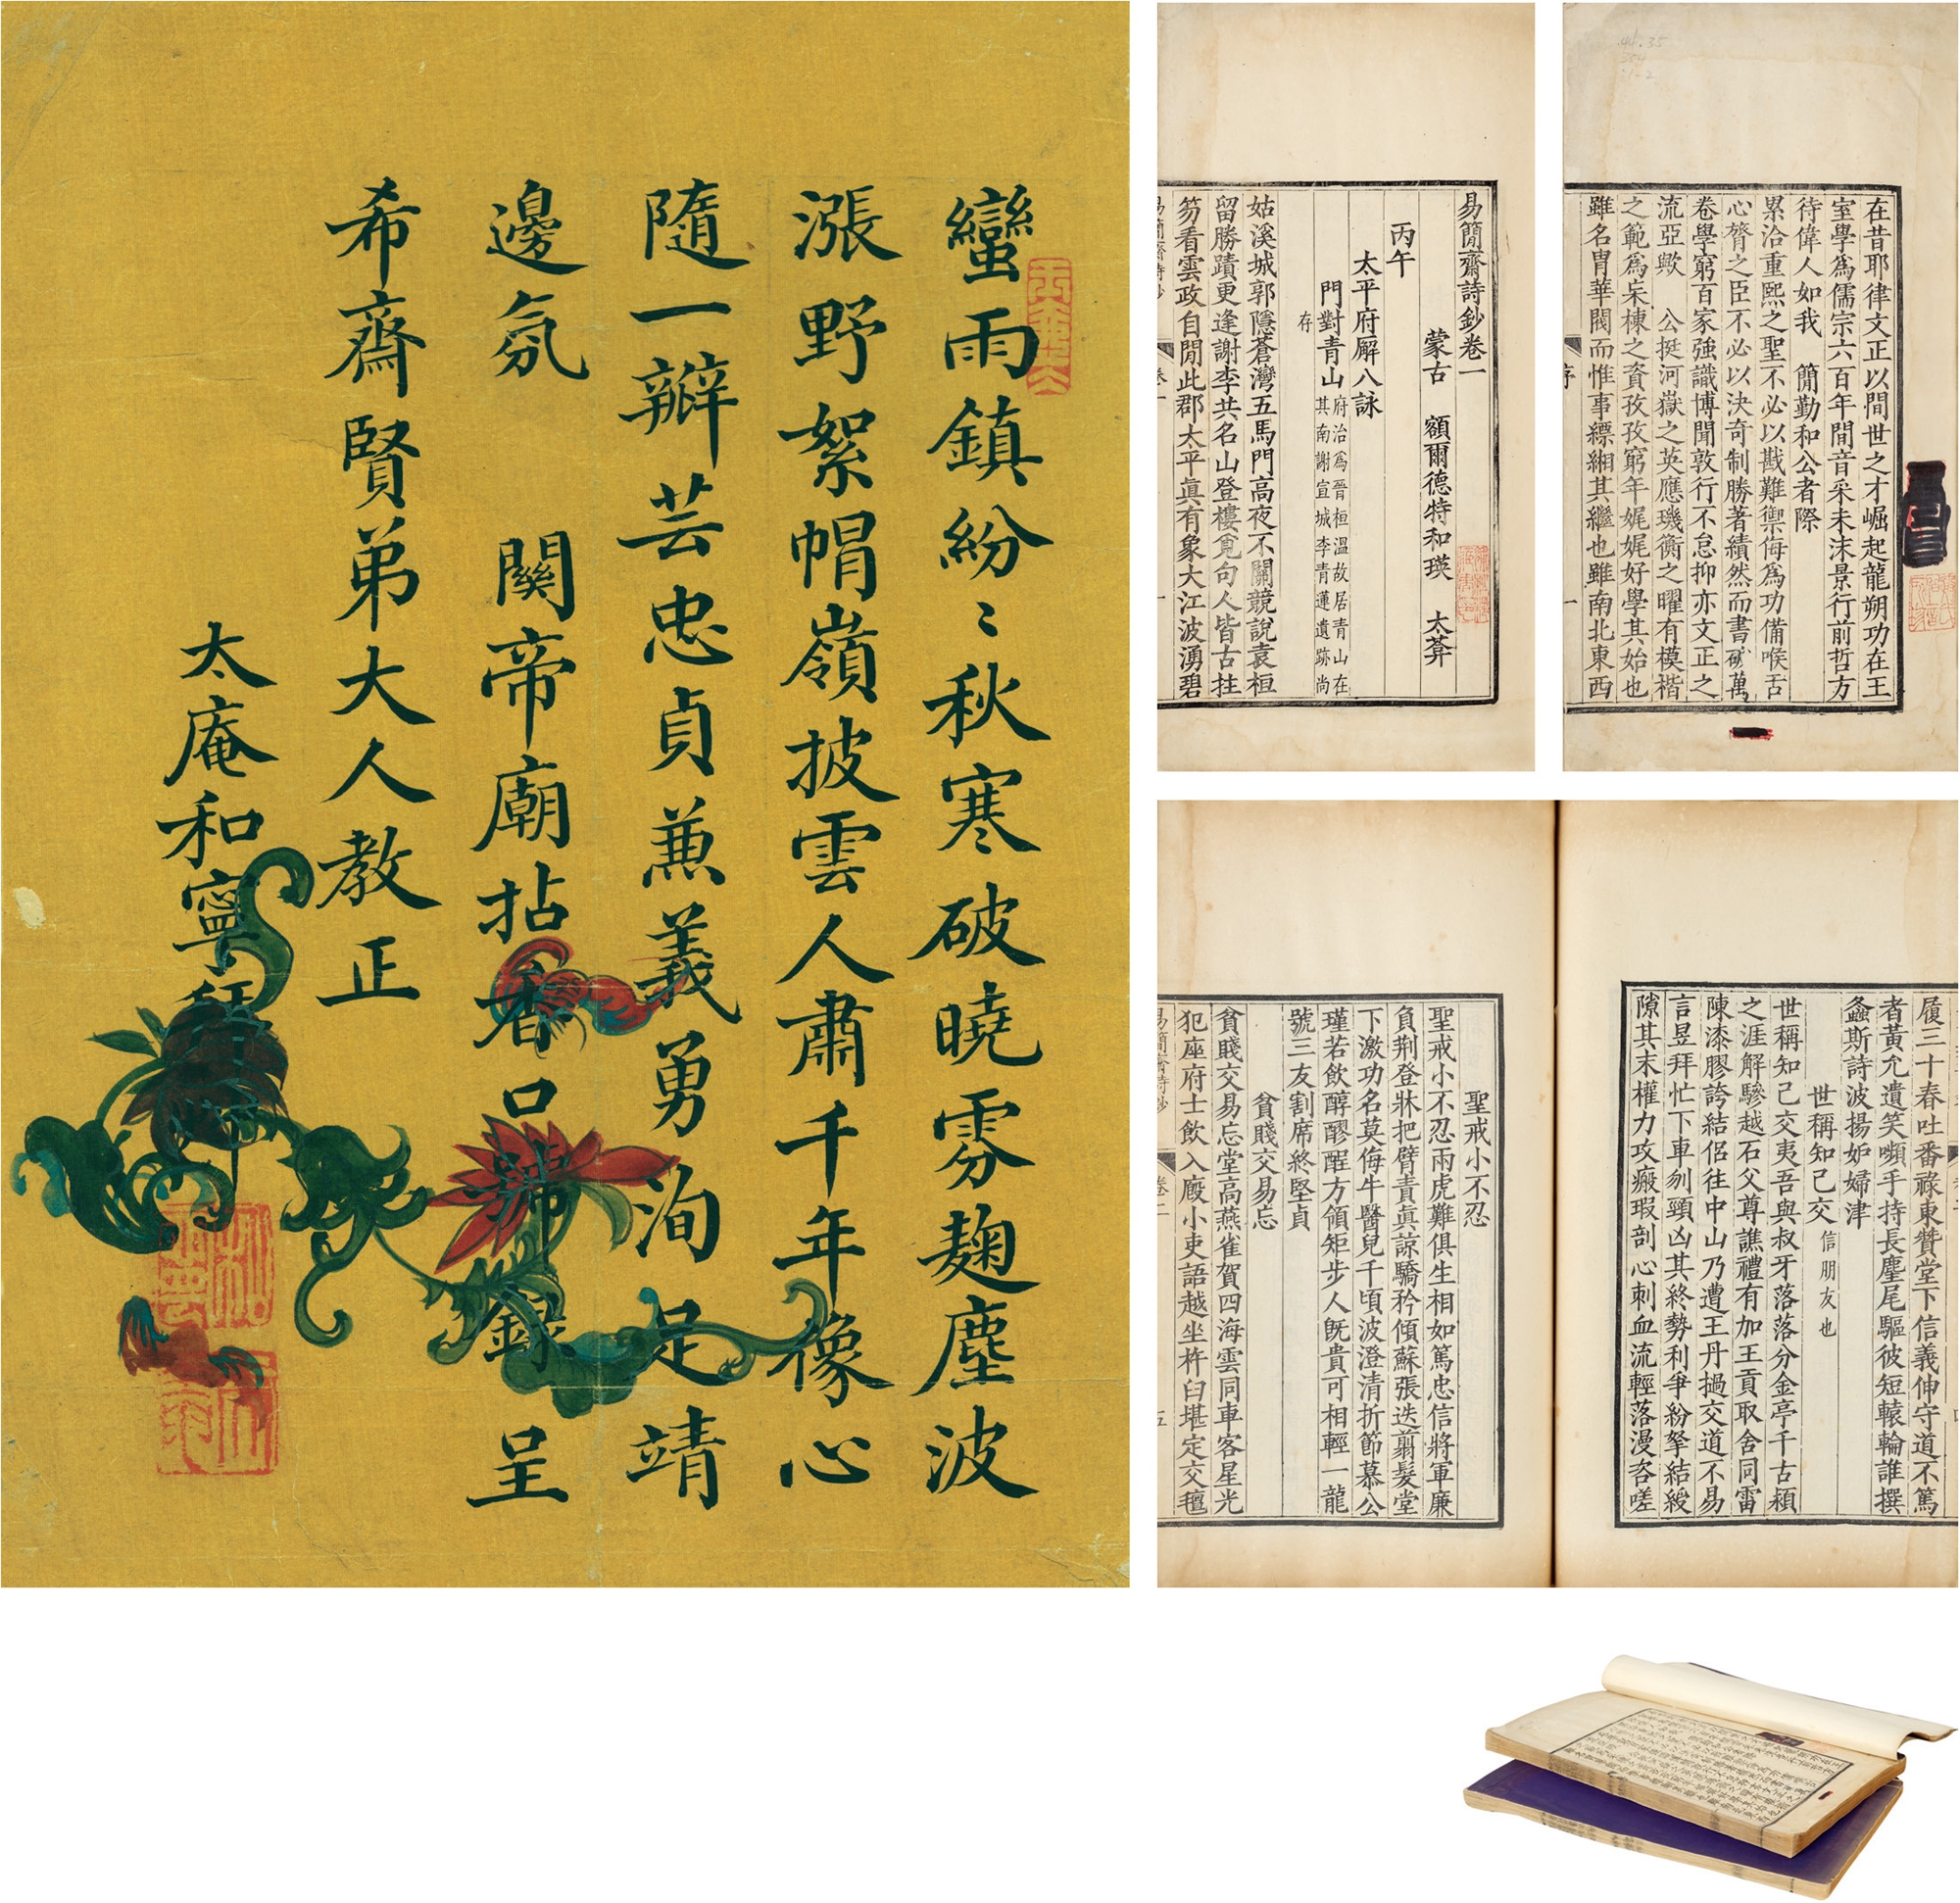 蠻雨鎮紛〻秋寒破曉雰麹塵波
漲野絮帽嶺披雲人肅千年像心
隨一瓣芸忠貞兼義勇洵足靖
邊氛
關帝廟拈香口號錄呈
希齋賢弟大人教正
太庵和寧拜
易簡齋詩鈔卷一
蒙古 額爾德特和瑛 太葊
丙午
太平府廨八詠
門對青山府治為晉桓溫故居青山在其南謝宣城李青蓮遺跡尚存
姑溪城郭隱蒼灣五馬門高夜不關競說袁桓
留勝蹟更逢謝李共名山登樓覓句人皆古拄
笏看雲政自閒此郡太平真有象大江波湧碧
在昔耶律文正以間世之才崛起龍朔功在王
室學為儒宗六百年間音采未沫景行前哲方
待偉人如我 簡勤和公者際
累洽重熙之聖不必以戡難禦侮為功備喉舌
心膂之臣不必以決奇制勝著績然而書破萬
卷學窮百家強識博聞敦行不怠抑亦文正之
流亞歟 公挺河嶽之英應璣衡之曜有模楷
之範為杗棟之資孜孜窮年娓娓好學其始也
雖名冑華閥而惟事縹緗其繼也雖南北東西
履三十春吐番祿東贊堂下信義伸守道不篤
者黃允遺笑嚬手持長麈尾驅彼短轅輪誰撰
螽斯詩波揚妒婦津
世稱知己交信朋友也
世稱知己交夷吾與叔牙落落分金亭千古穎
之涯解驂越石父尊譙禮有加王貢取舍同雷
陳漆膠誇結侶往中山乃遭王丹撾交道不易
言昱拜忙下車刎頸凶其終勢利爭紛拏結綬
隙其末權力攻瘢瑕剖心刺血流輕落漫咨嗟
聖戒小不忍
聖戒小不忍兩虎難俱生相如篤忠信將軍廉
負荆登牀把臂責眞諒驕矜傾蘇張迭翦髮堂
下激功名莫侮牛醫兒千頃波澄清折節慕公
瑾若飲醇醪醒方領矩步人旣貴可相輕一龍
號三友割席終堅貞
貧賤交易忘
貧賤交易忘堂高燕雀賀四海雲同車客星光
犯座府士飲入廄小吏語越坐杵臼堪定交氊